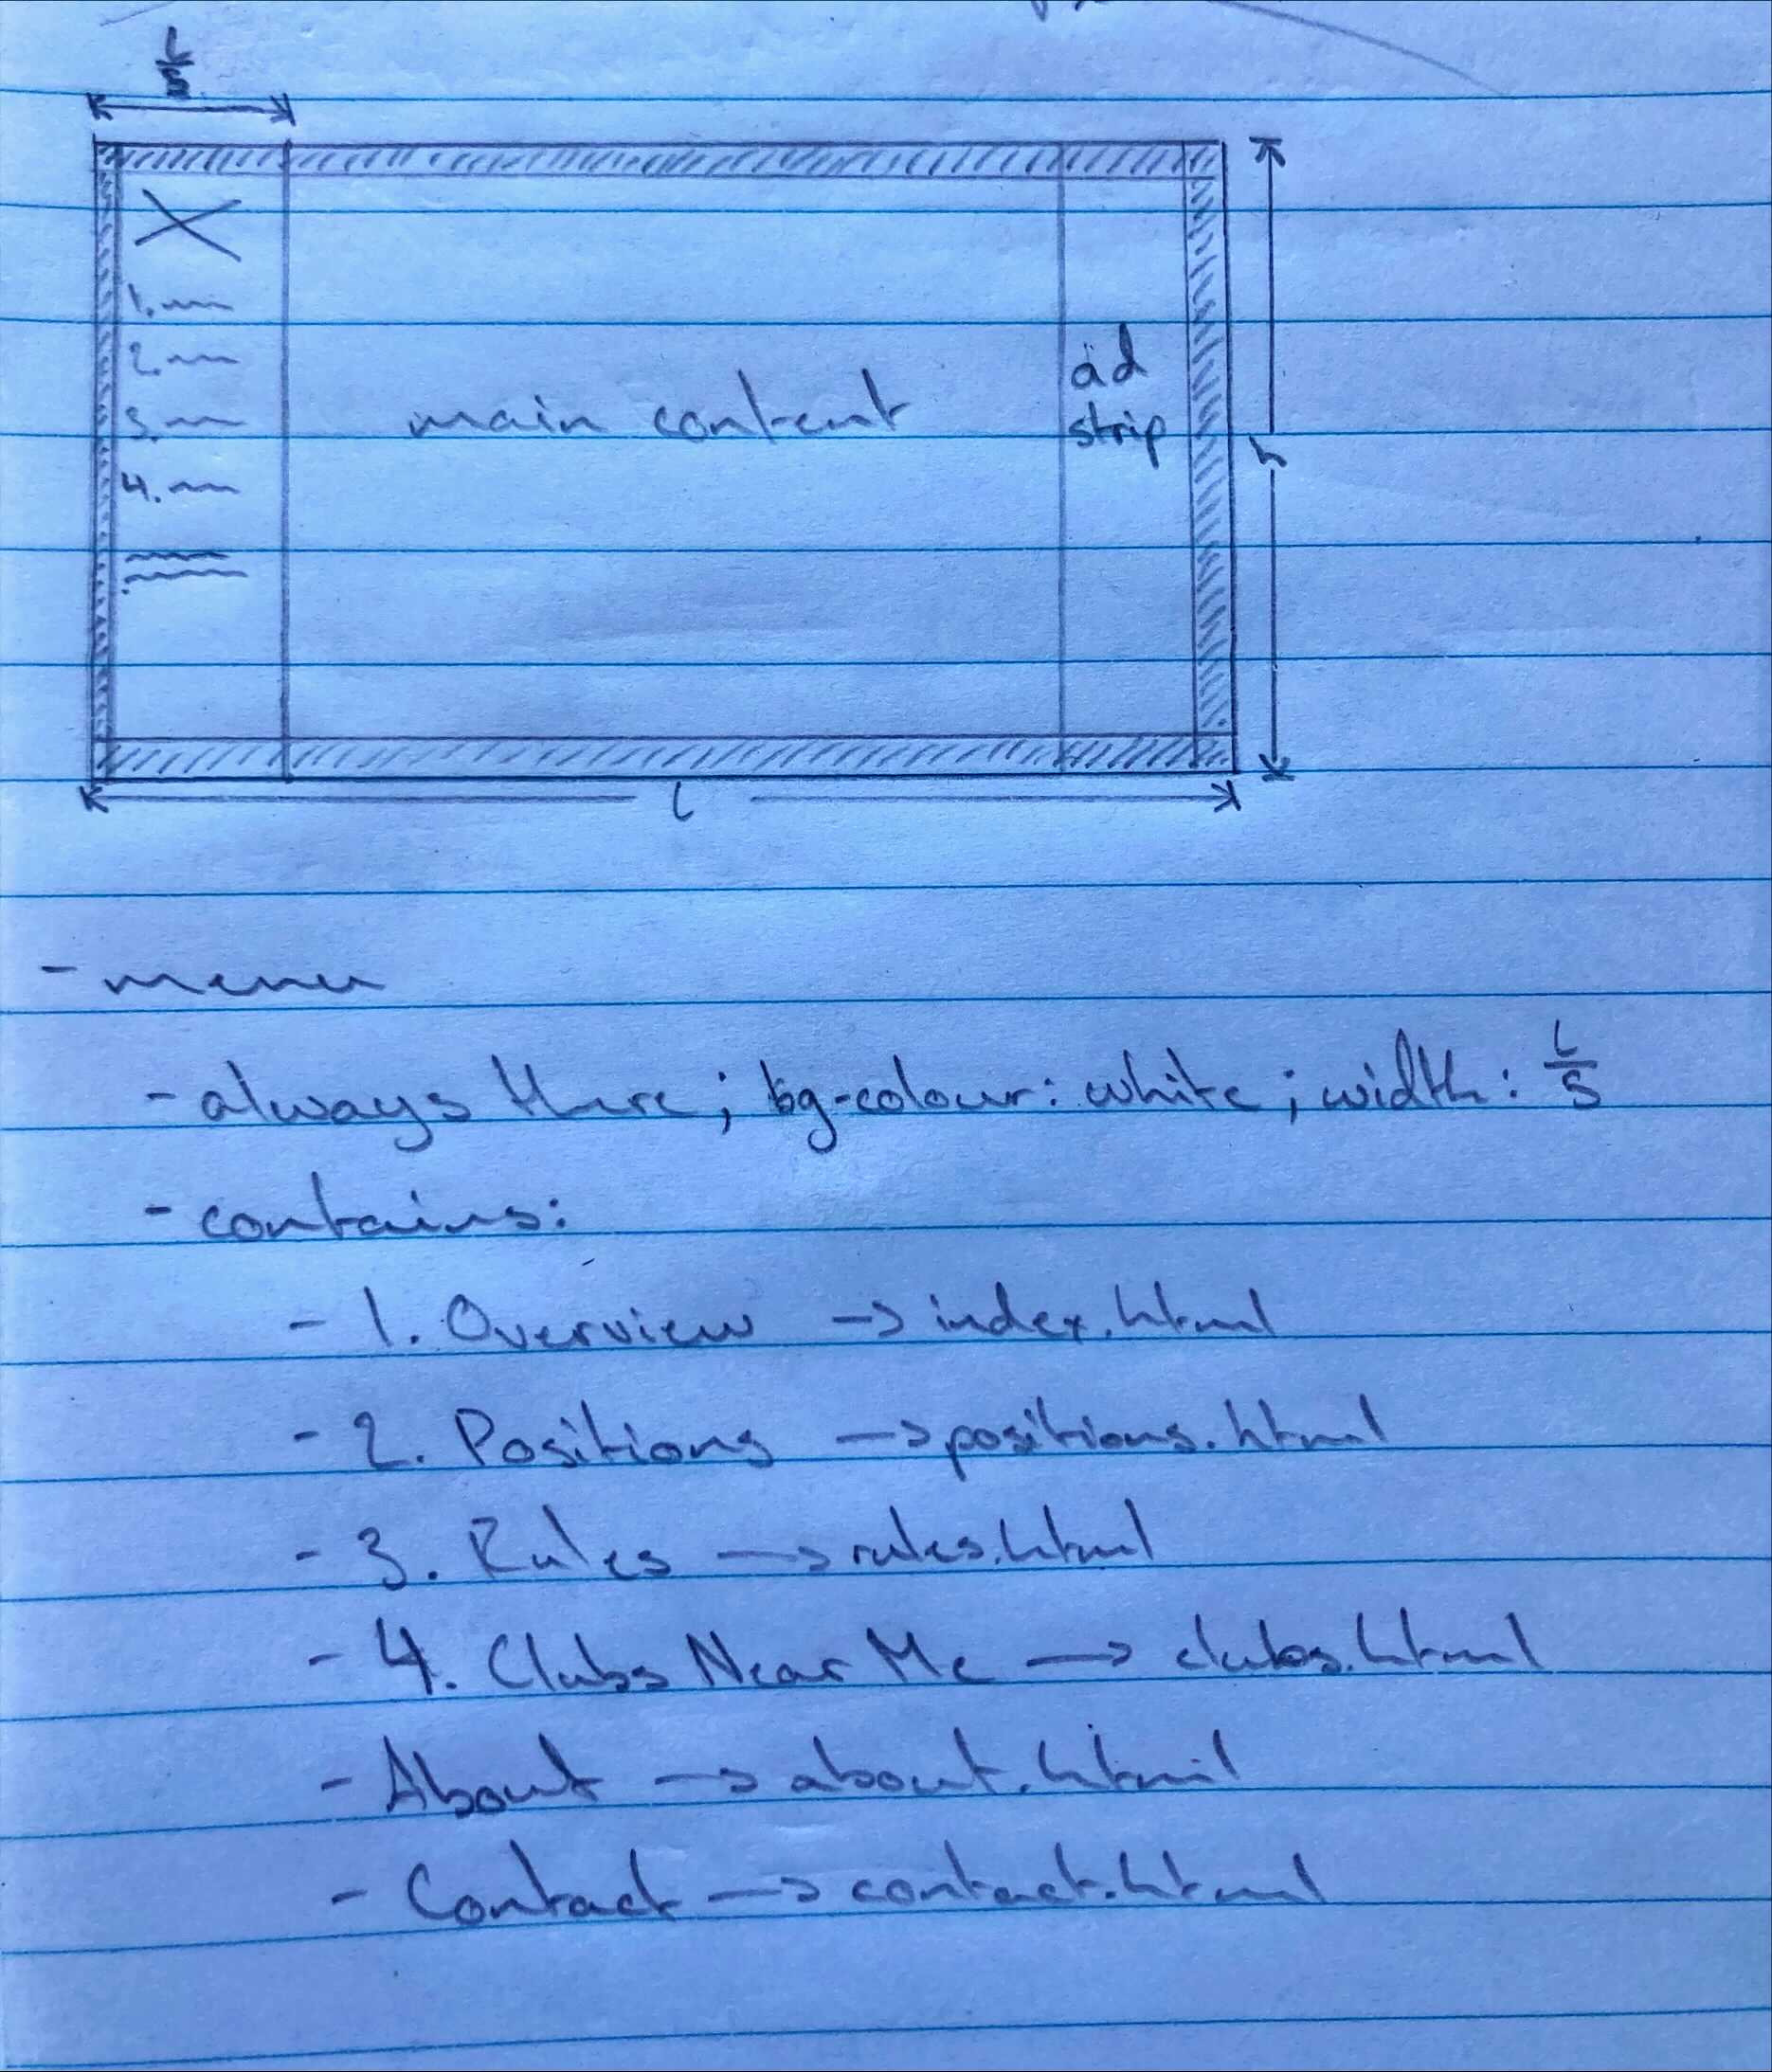 L/5
1.
2.
3.
4.
main content
ad
strip
h
L
- menu
- always there; bg-colour: white; width: L/5
- contains:
- 1. Overview -> index.html
- 2. Positions -> positions.html
- 3. Rules -> rules.html
- 4. Clubs Near Me -> clubs.html
- About -> about.html
- Contact -> contact.html